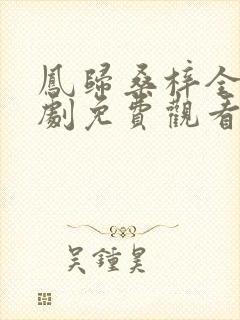 鳳歸桑梓全
劇免費觀看
吴鍾昊